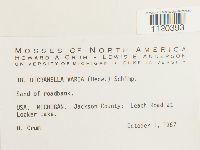 1120393
MOSSES OF NORTH AMERICA
HOWARD A. CRUM - LEWIS E. ANDERSON
DICRANELLA VARIA (Hedw.) Schimp.
Sand of roadbank.
USA. MICHIGAN. Jackson County: Leach Road at
Lake.
H. Crum. October